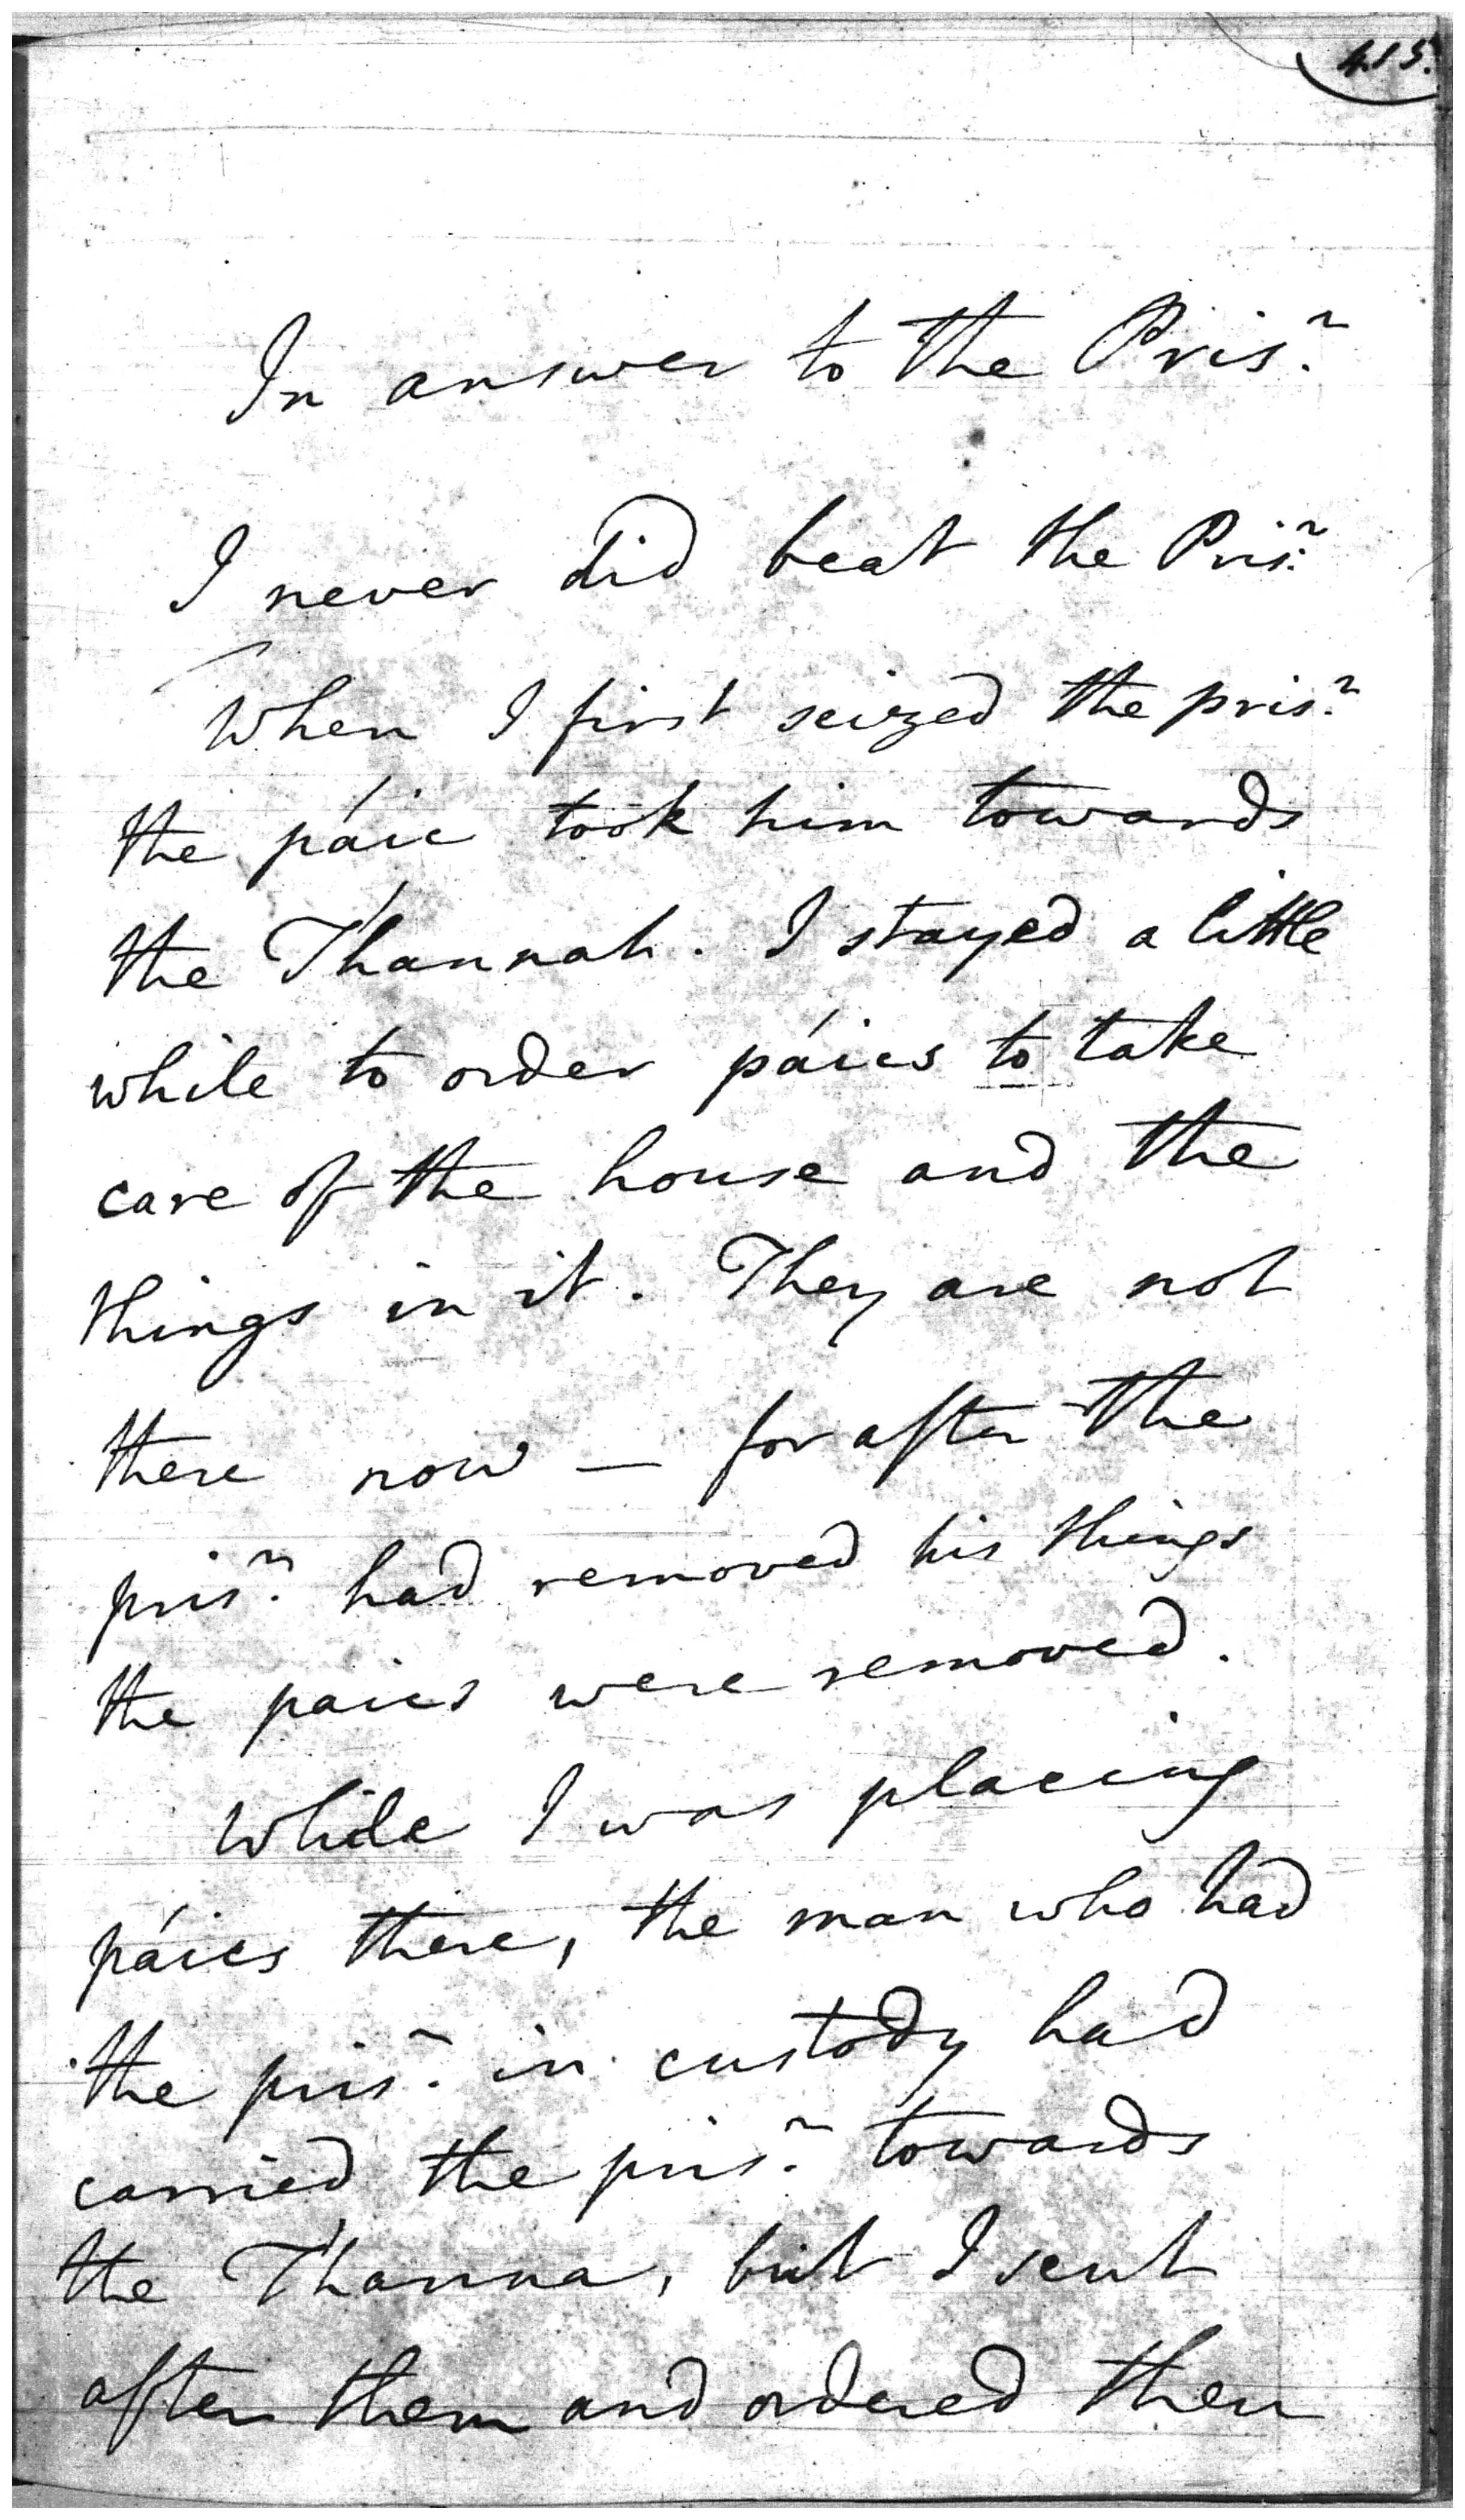 415.
In answer to the Pris.ʳ
I never did beat the Pris.ʳ
When I first seized the pris.ʳ
the páic took him towards
the Thánnah. I stayed a little
while to order páics to take
care of the house and the
things in it. They are not
there now — for after the
pris.ʳ had removed his things
the paics were removed.
While I was placing
páics there, the man who had
the pris.ʳ in custody had
carried the pris.ʳ towards
the Thánna, but I sent
after them and ordered them